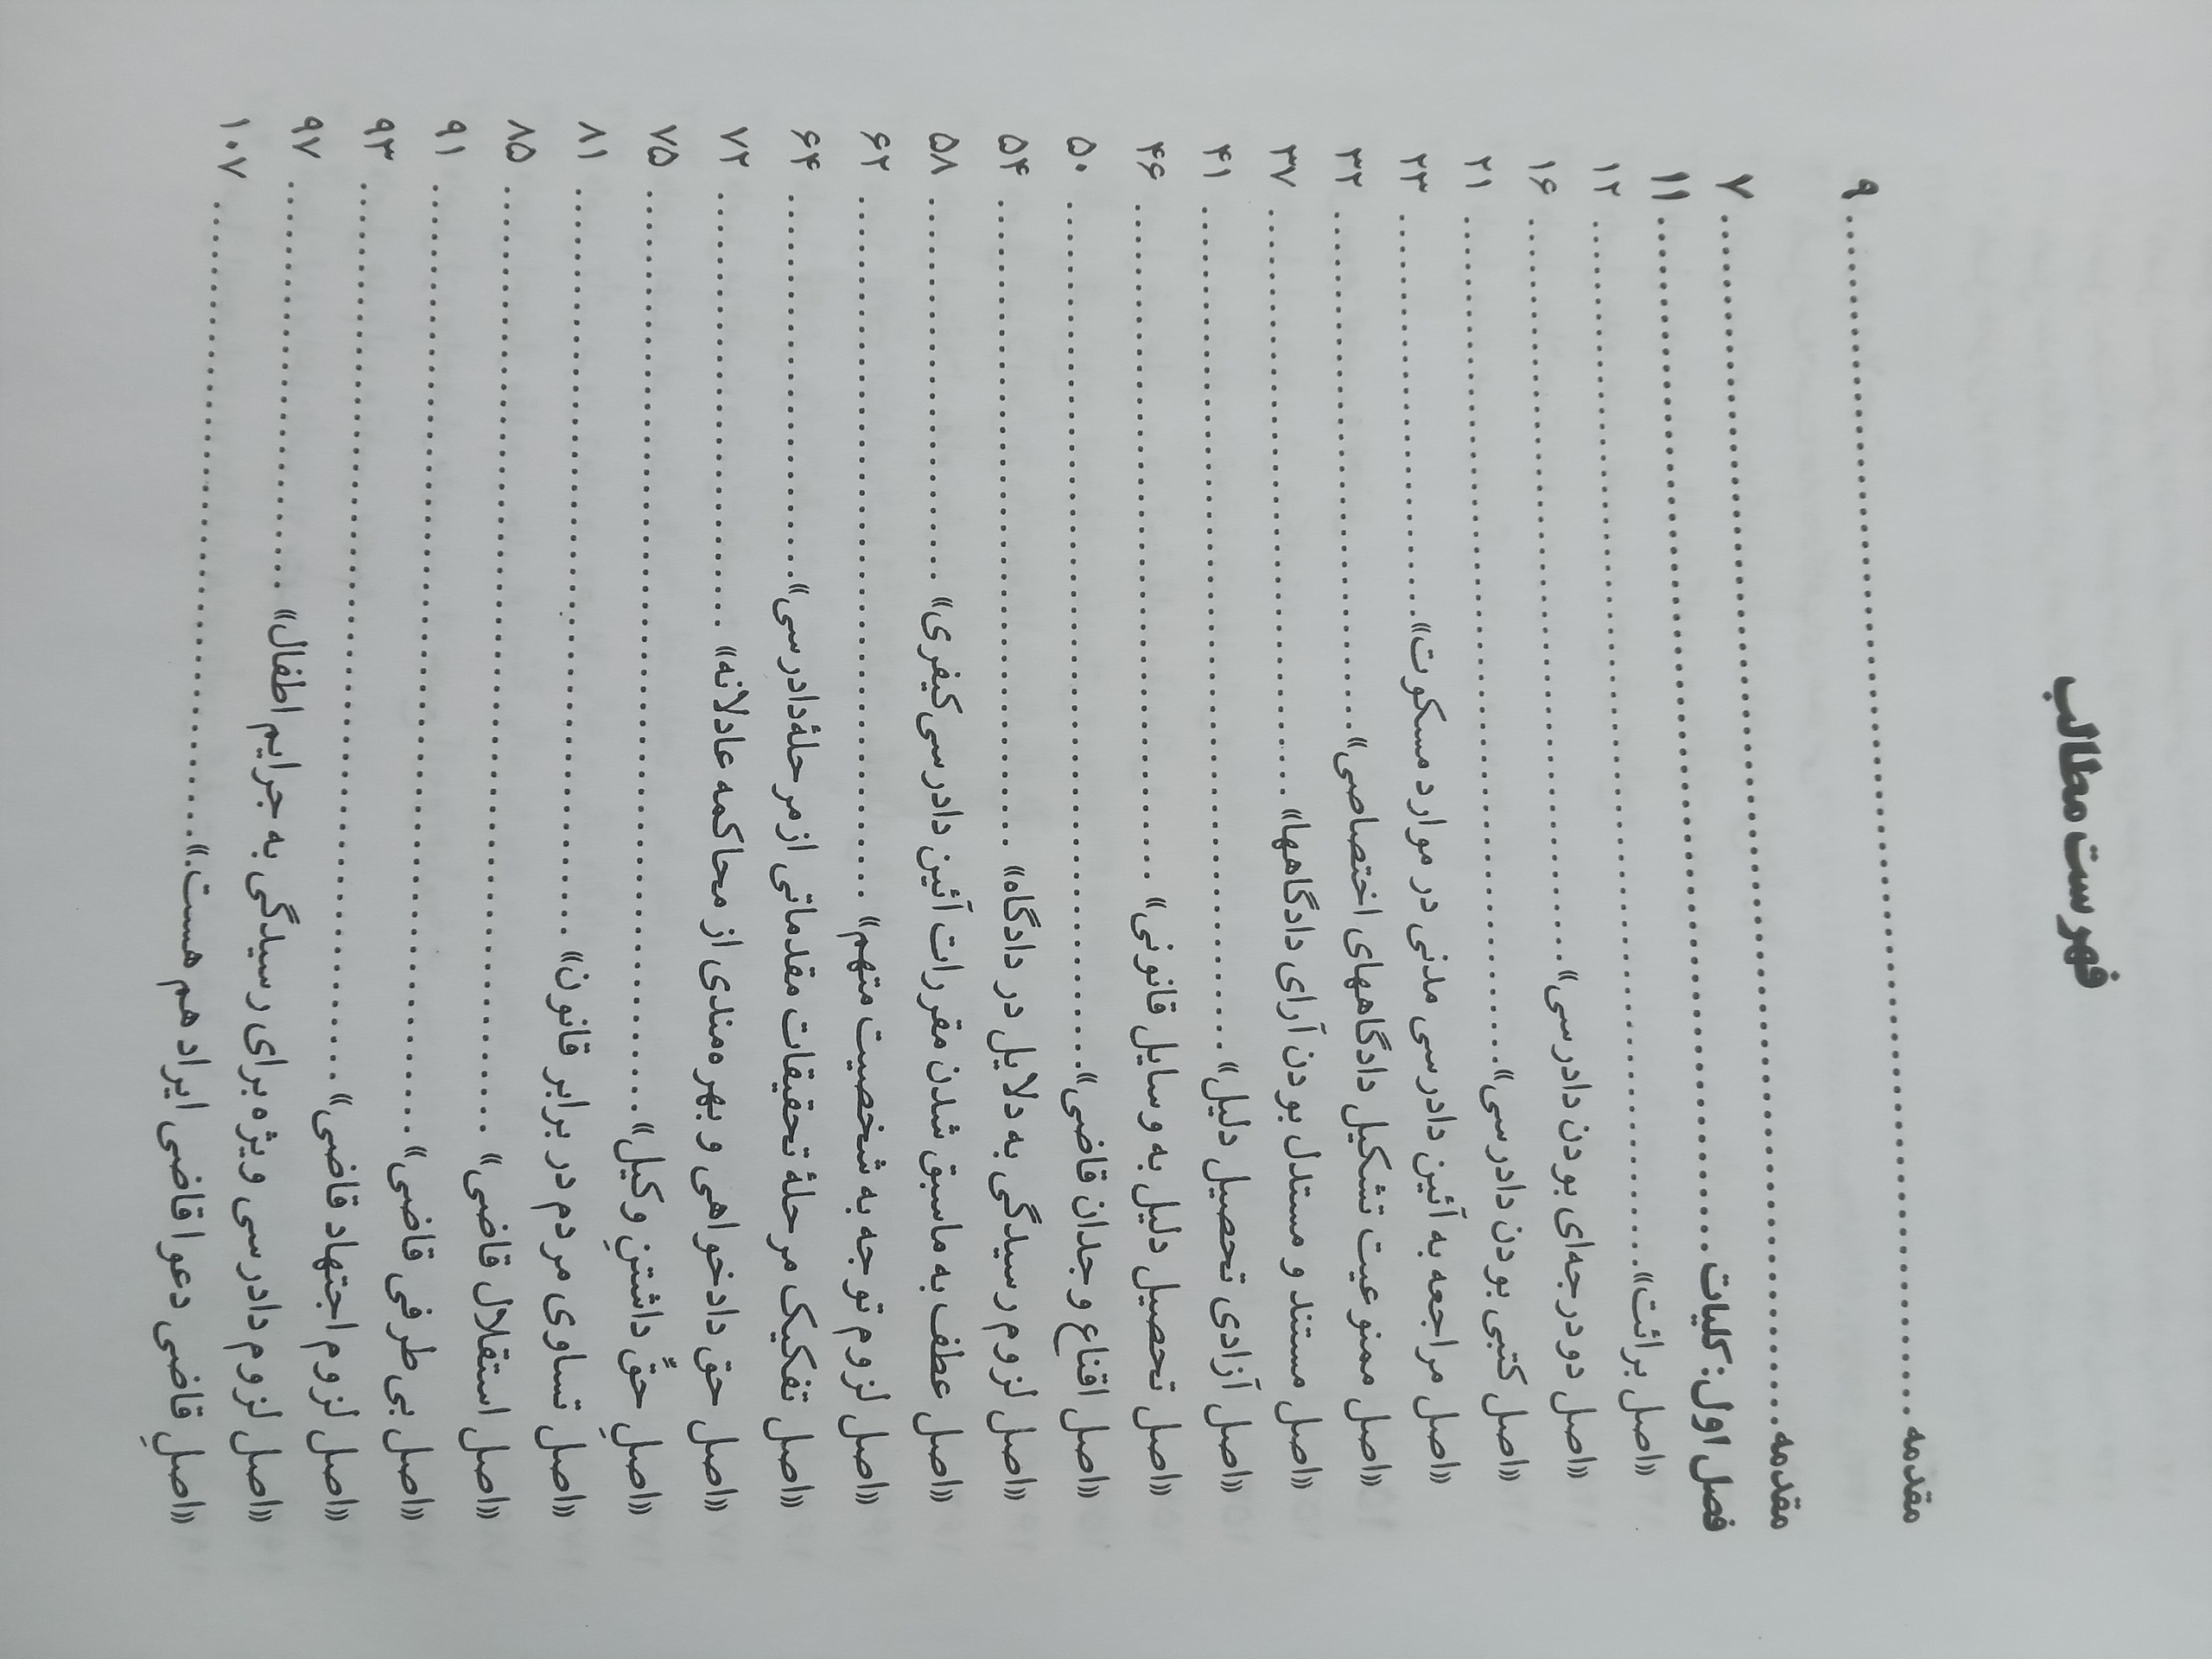 فهرست مطالب
مقدمه ........ ۹
مقدمه ........ ۷
فصل اول: کلیات ........ ۱۱
«اصل برائت» ........ ۱۲
«اصل دو درجه‌ای بودن دادرسی» ........ ۱۶
«اصل کتبی بودن دادرسی» ........ ۲۱
«اصل مراجعه به آئین دادرسی مدنی در موارد مسکوت» ........ ۲۳
«اصل ممنوعیت تشکیل دادگاههای اختصاصی» ........ ۳۲
«اصل مستند و مستدل بودن آرای دادگاهها» ........ ۳۷
«اصل آزادی تحصیل دلیل» ........ ۴۱
«اصل تحصیل دلیل به وسایل قانونی» ........ ۴۶
«اصل اقناع وجدان قاضی» ........ ۵۰
«اصل لزوم رسیدگی به دلایل در دادگاه» ........ ۵۴
«اصل عطف به ماسبق شدن مقررات آئین دادرسی کیفری» ........ ۵۸
«اصل لزوم توجه به شخصیت متهم» ........ ۶۲
«اصل تفکیک مرحلهٔ تحقیقات مقدماتی از مرحلهٔ دادرسی» ........ ۶۴
«اصل حق دادخواهی و بهره‌مندی از محاکمه عادلانه» ........ ۷۲
«اصلِ حقِّ داشتنِ وکیل» ........ ۷۵
«اصل تساوی مردم در برابر قانون» ........ ۸۱
«اصل استقلال قاضی» ........ ۸۵
«اصل بی‌طرفی قاضی» ........ ۹۱
«اصل لزوم اجتهاد قاضی» ........ ۹۳
«اصل لزوم دادرسی ویژه برای رسیدگی به جرایم اطفال» ........ ۹۷
«اصلِ قاضی دعوا قاضی ایراد هم هست.» ........ ۱۰۷